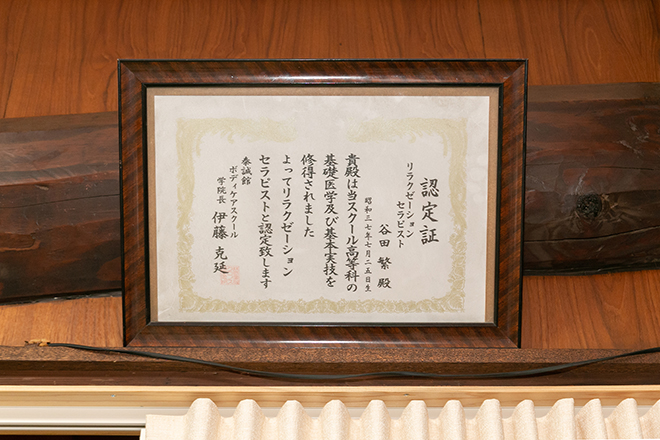 認定証
リラクゼーション
セラピスト
谷田 繁 殿
昭和三七年七月二五日生
貴殿は当スクール高等科の
基礎医学及び基本実技を
修得されました
よってリラクゼーション
セラピストと認定致します
泰誠館
ボディケアスクール
学院長 伊藤 克延